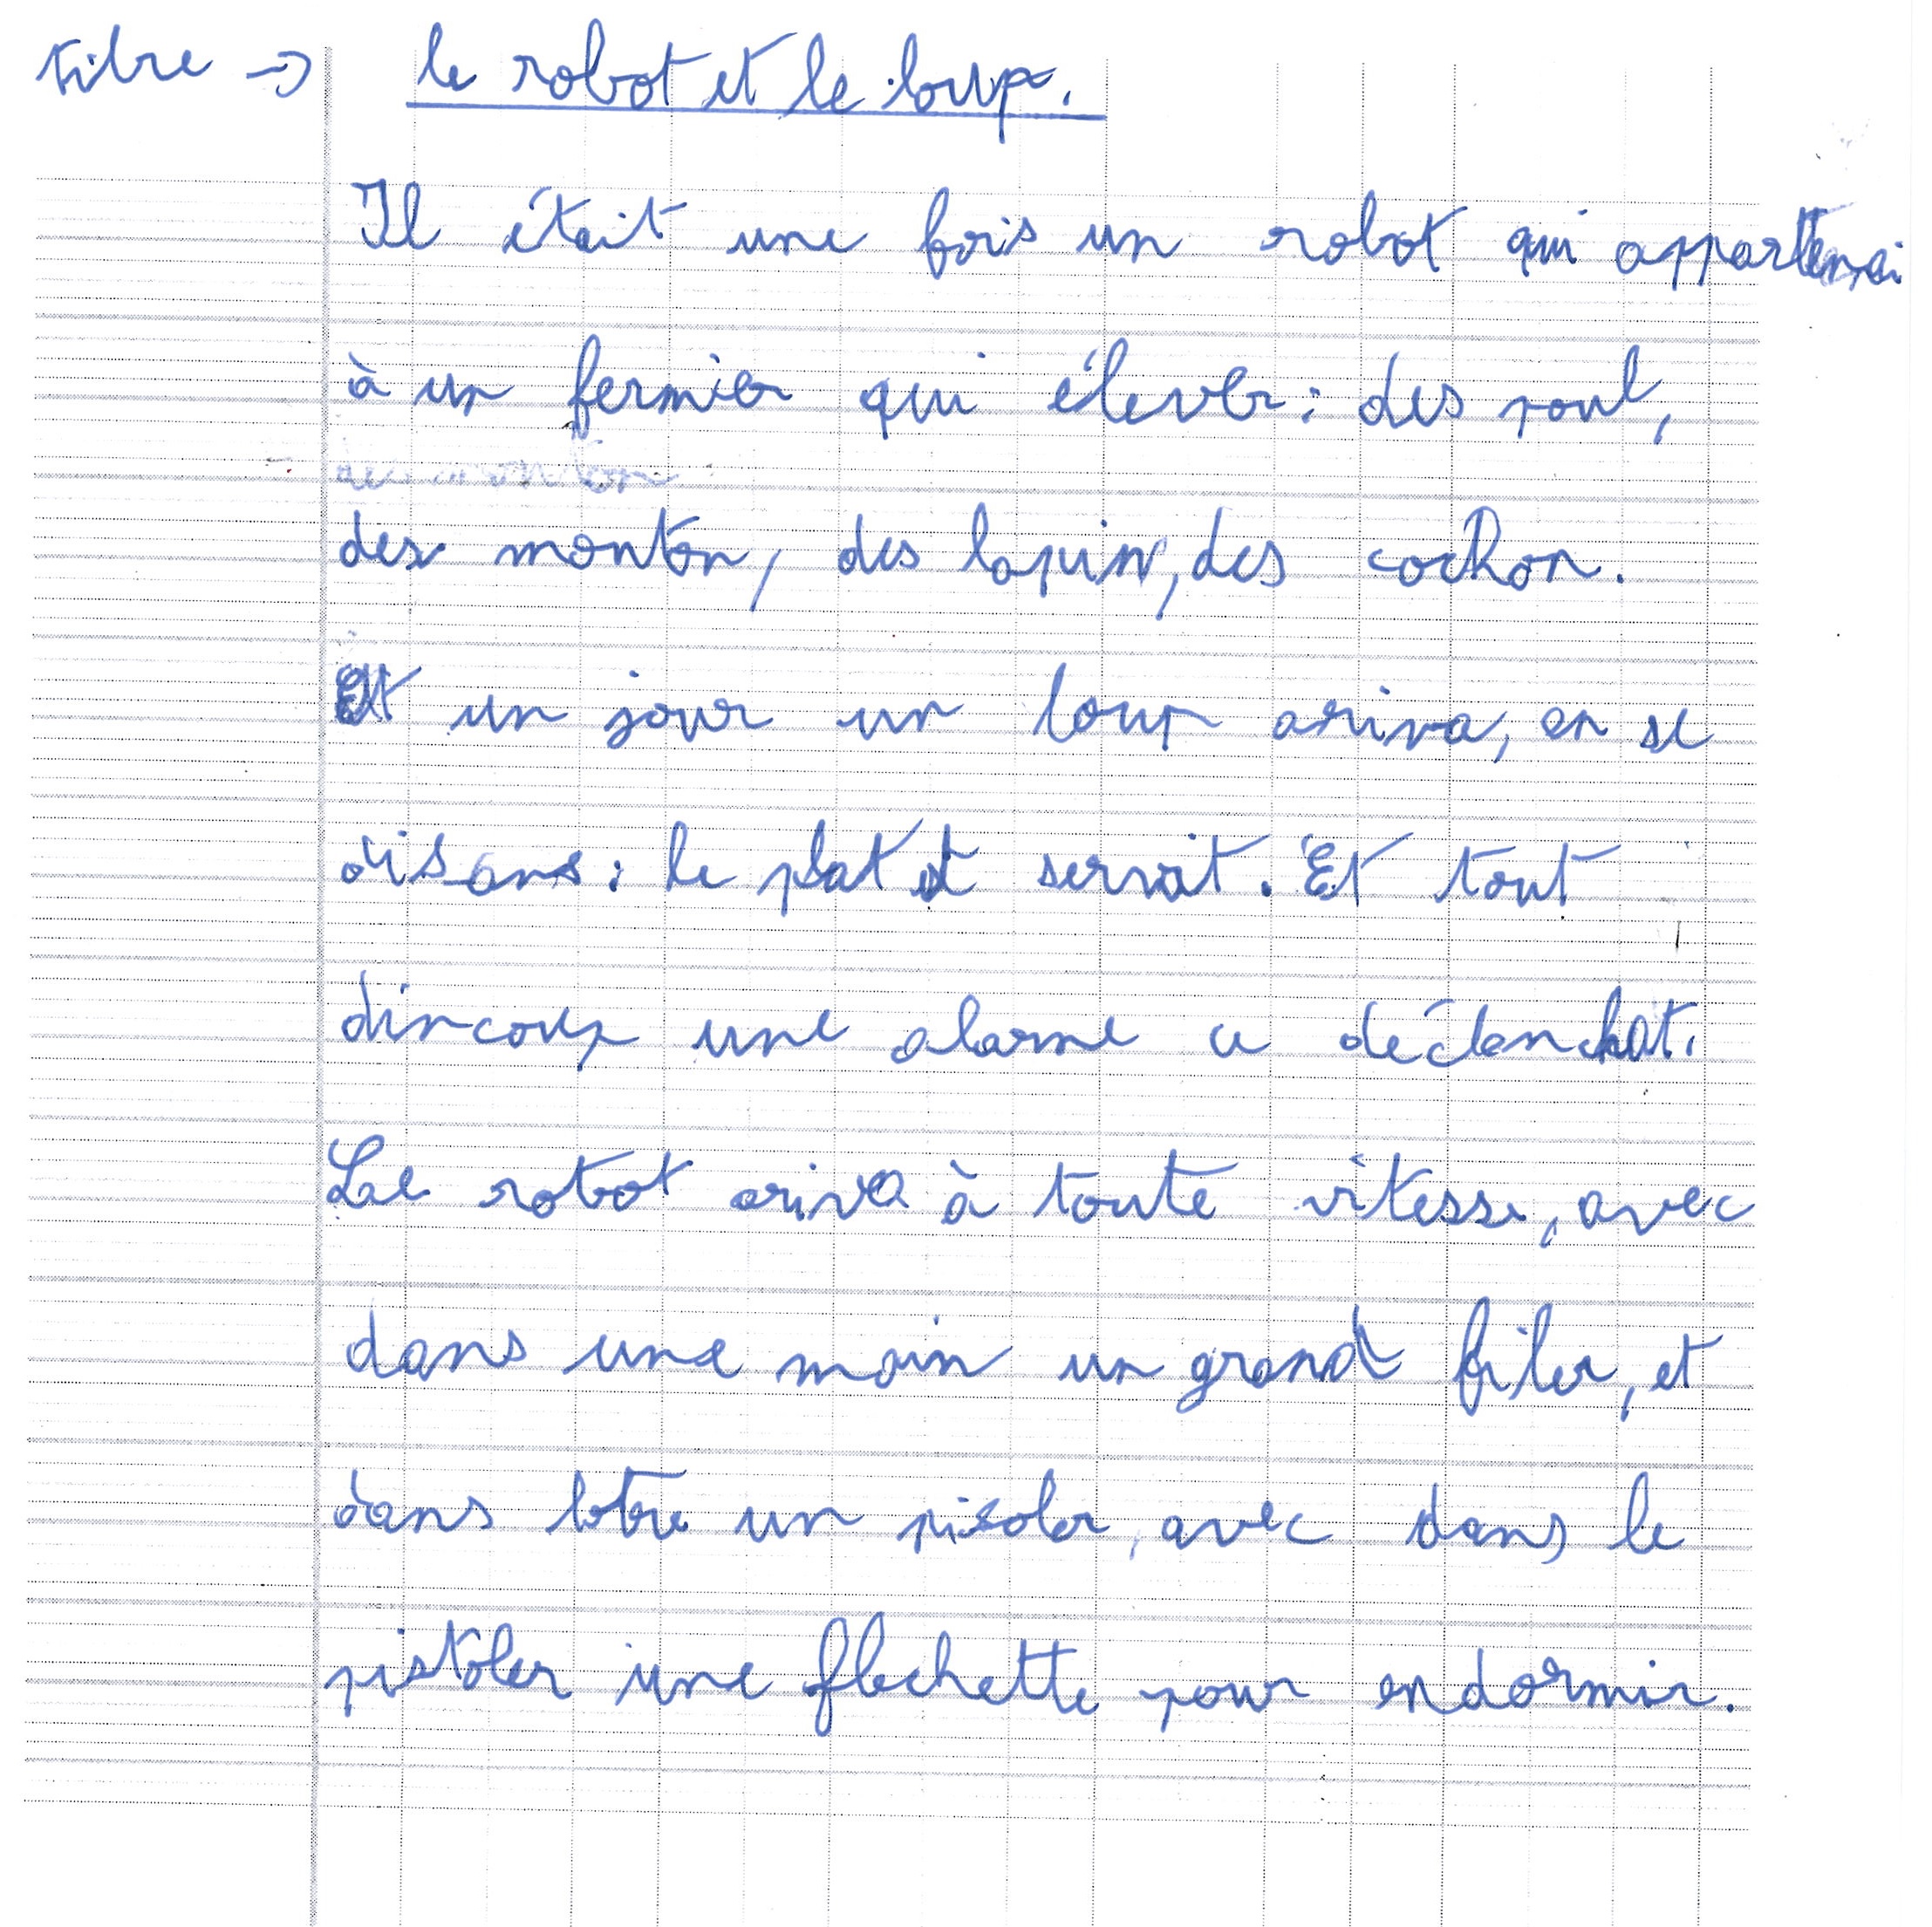 titre → le robot et le loup.
Il était une fois un robot qui appartenai
à un fermier qui élever : des poul,
des mouton, des lapin, des cochon.
Et un jour un loup ariva, en se
disans : le plat et servit. Et tout
dincoup une alarme ce déclanchat.
Le robot ariva à toute vitesse, avec
dans une main un grand filer, et
dans lotre un pisoler, avec dans le
pistoler une flechette pour endormir.